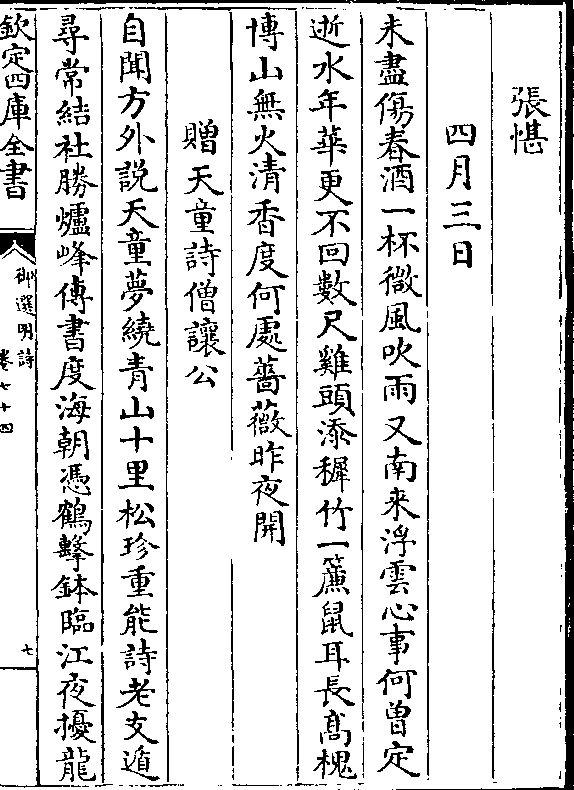 張愖
四月三日
未盡傷春酒一杯微風吹雨又南來浮雲心事何曾定
逝水年華更不回數尺雞頭添穉竹一簾鼠耳長髙槐
博山無火清香度何處薔薇昨夜開
贈天童詩僧讓公
自聞方外說天童夢繞青山十里松珍重能詩老支遁
尋常結社勝爐峰傳書度海朝憑鶴擊鉢臨江夜擾龍
欽定四庫全書
御選明詩
卷七十四
七